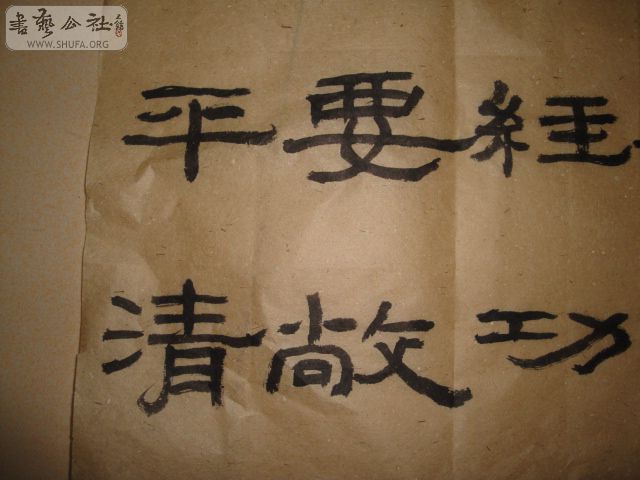 書藝公社
WWW.SHUFA.ORG
平要經
清敞功